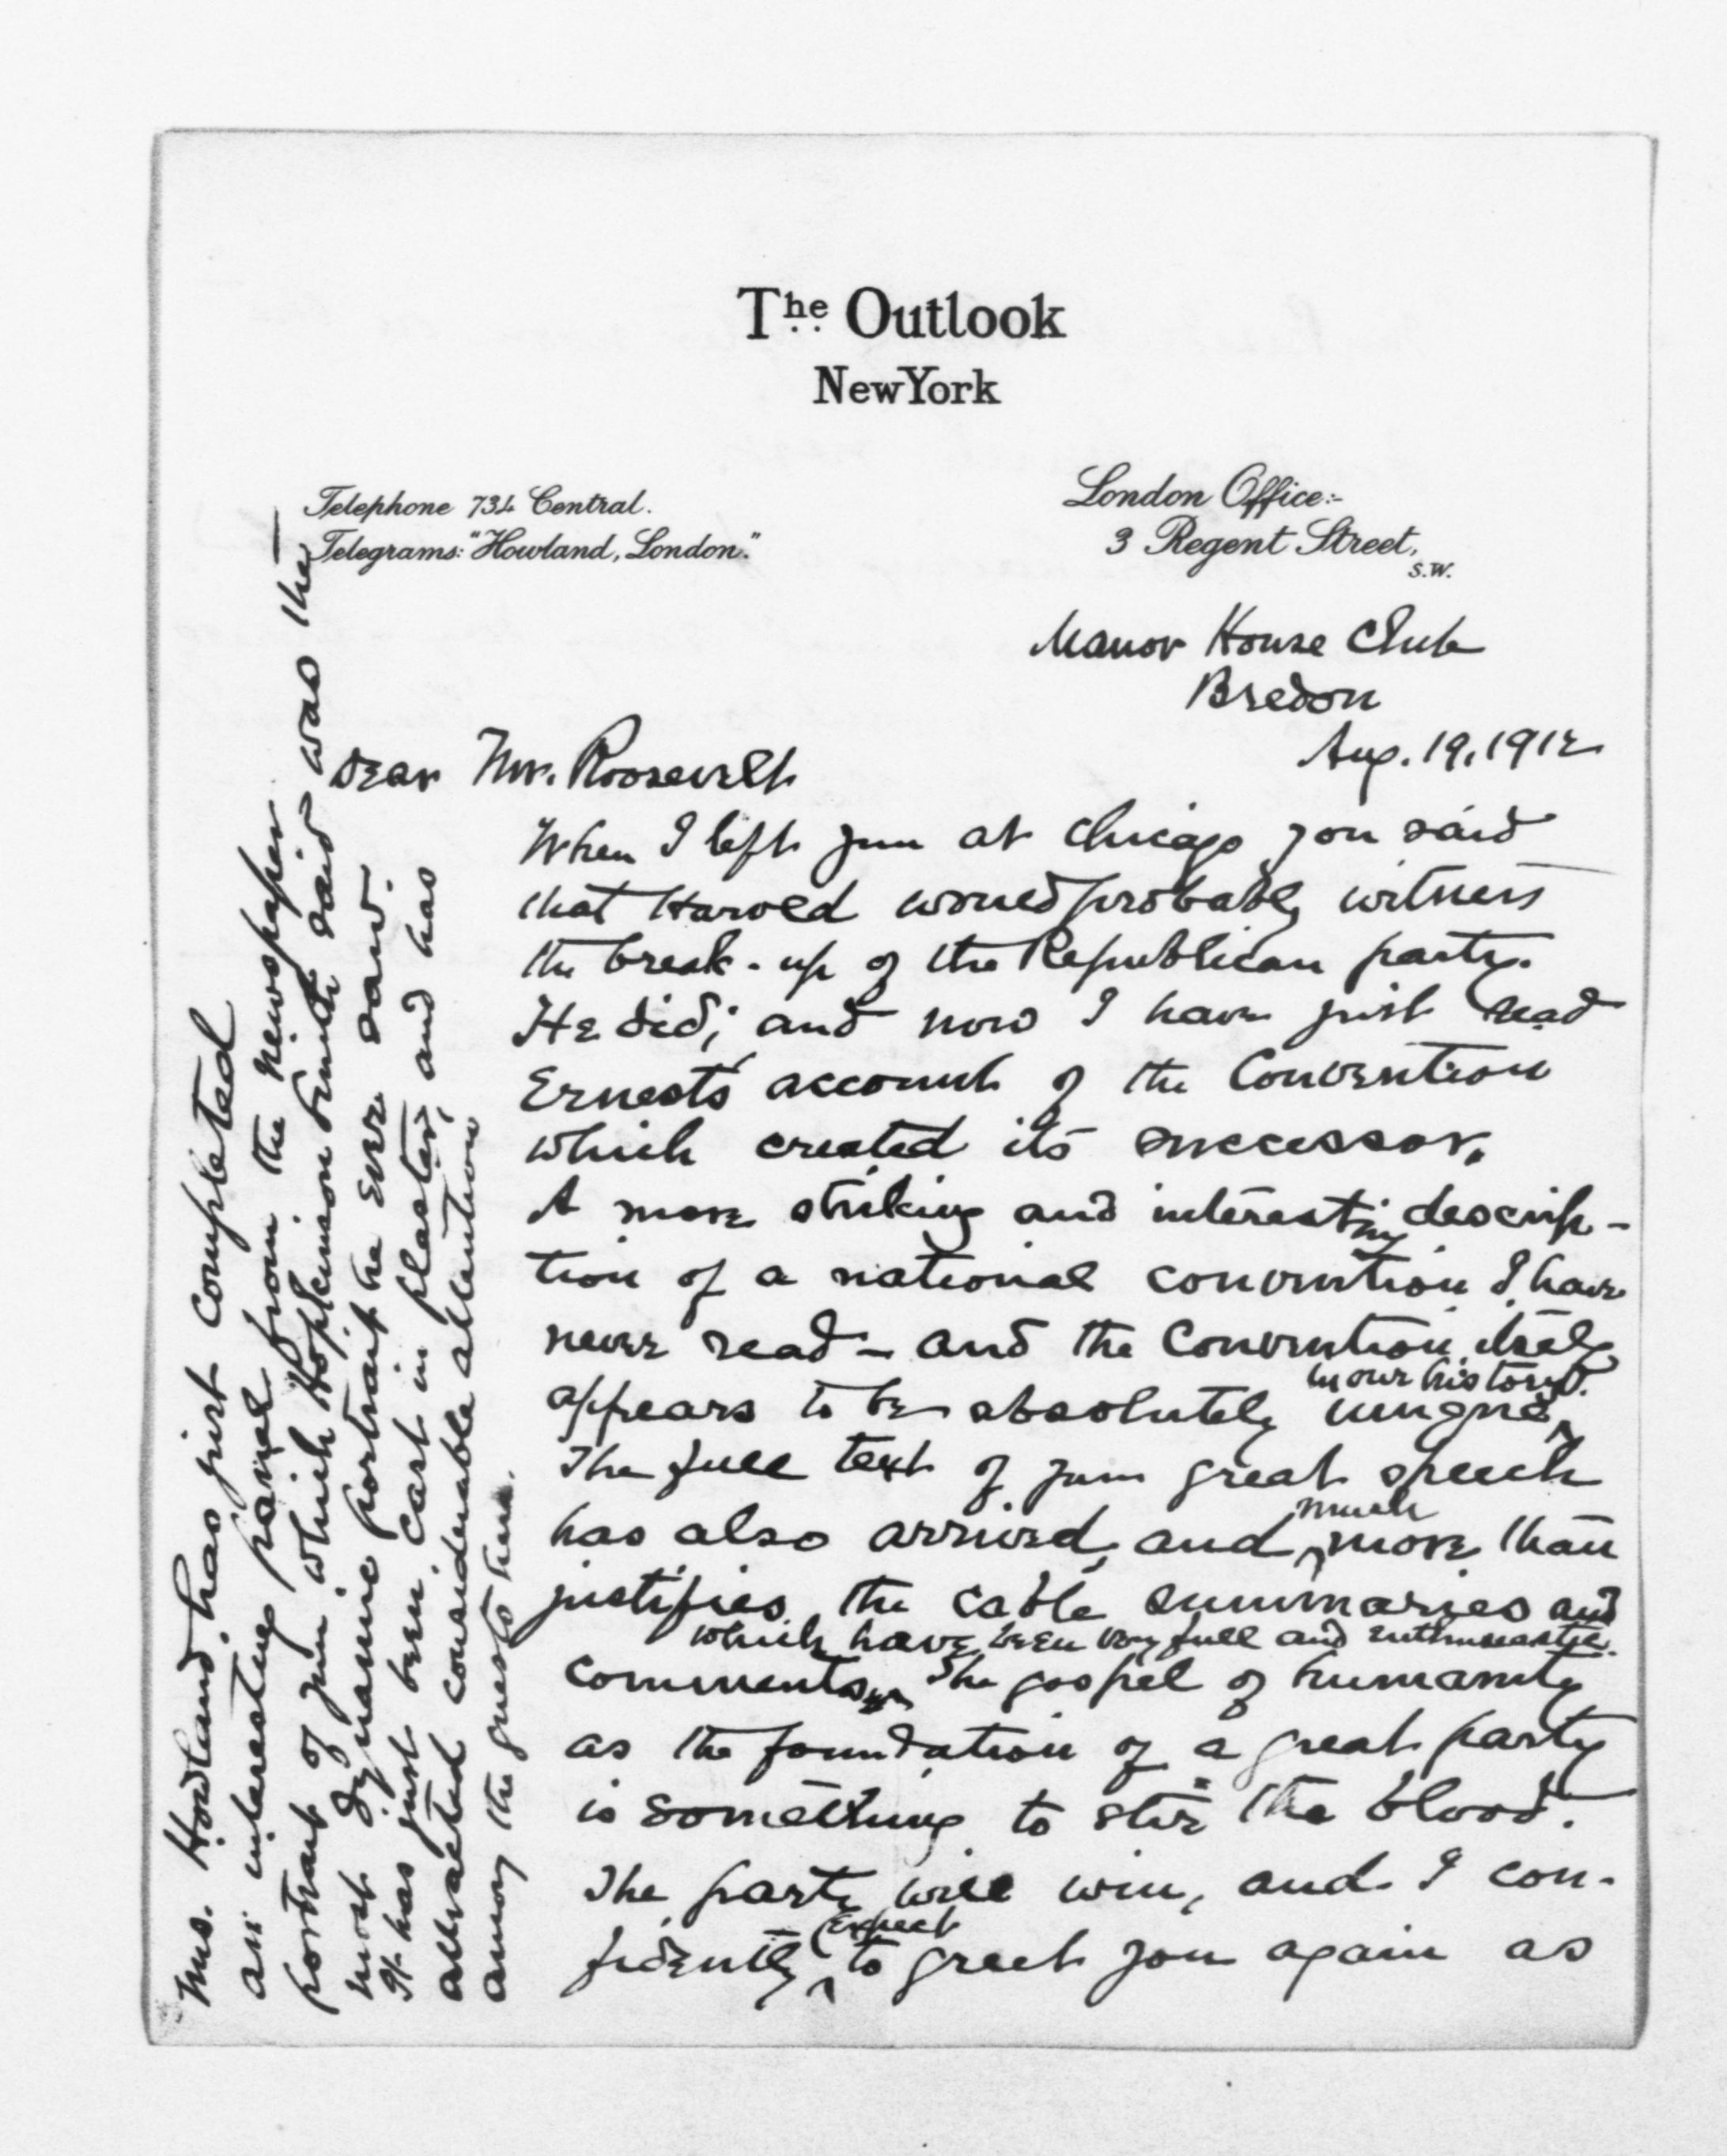 The Outlook
New York
Telephone 734 Central.
Telegrams: "Howland, London."
London Office:-
3 Regent Street,
S.W.
Manor House Club
Bredon
Aug. 19, 1912
Dear Mr. Roosevelt
When I left you at Chicago you said
that Harold would probably witness
the break-up of the Republican party.
He did; and now I have just read
Ernest's account of the Convention
which created its successor.
A more striking and interesting descrip-
tion of a national convention I have
never read - and the Convention itself
appears to be absolutely unique in our history.
The full text of your great speech
has also arrived, and much more than
justifies the cable summaries and
comments which have been very full and enthusiastic. The gospel of humanity
as the foundation of a great party
is something to stir the blood.
The party will win, and I con-
fidently expect to greet you again as
Mrs. Howland has just completed
an interesting panel from the newspaper
portrait of you which Hopkinson Smith said was the
most dynamic portrait he ever saw.
It has just been cast in plaster, and has
attracted considerable attention
among the guests here.